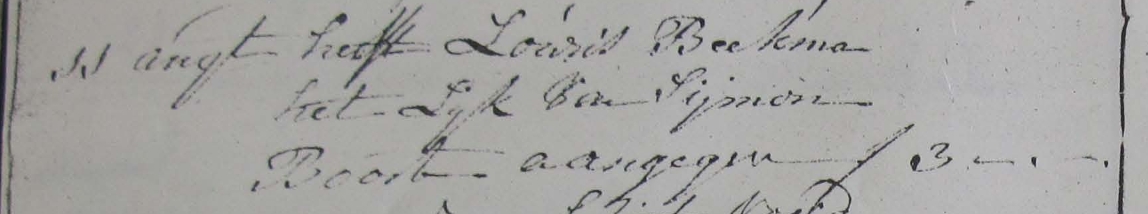 11 augt heeft Louris Beekma
het Lijk van Sijmon
Boort aangegeven f 3 -.-.